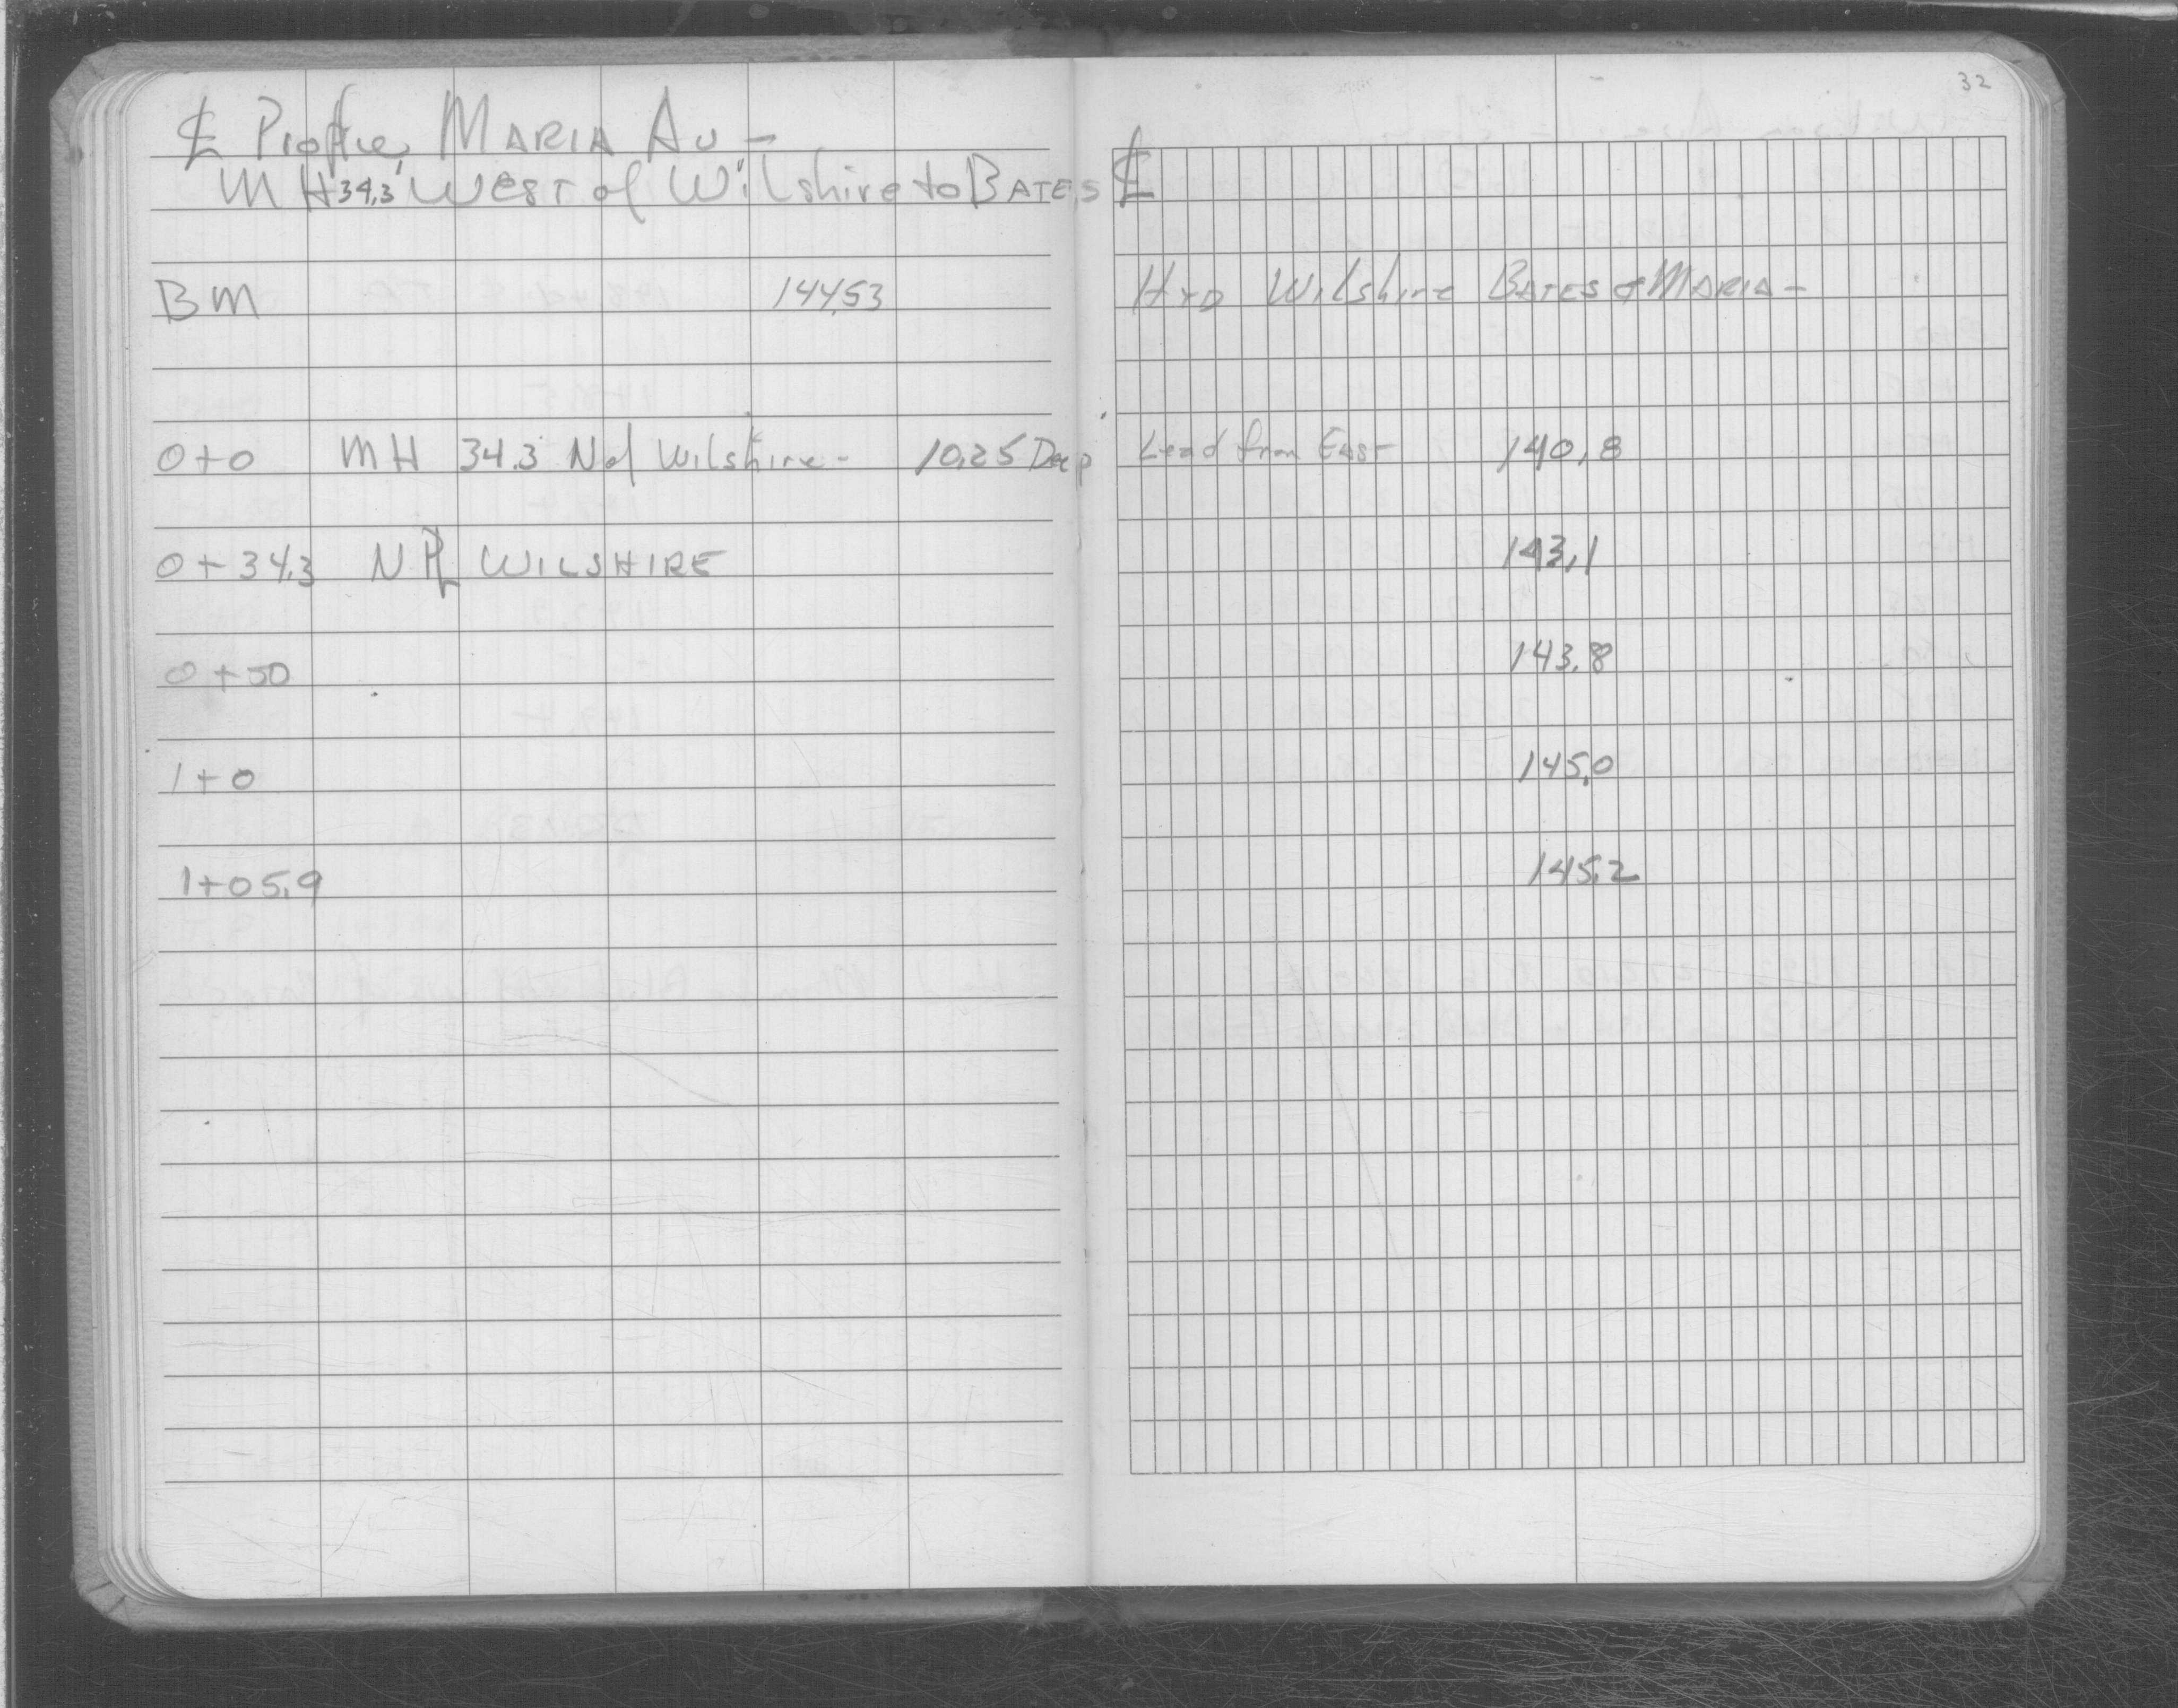 32
℄ Profile, MARIA AV -
MH 34.3' WEST of Wilshire to BATES ℄
BM 144.53 HYD Wilshire BATES & MARIA -
0+0 MH 34.3 N of Wilshire - 10.25 Deep Lead from EAST 140.8
0+34.3 N PL WILSHIRE 143.1
0+50 143.8
1+0 145.0
1+05.9 145.2